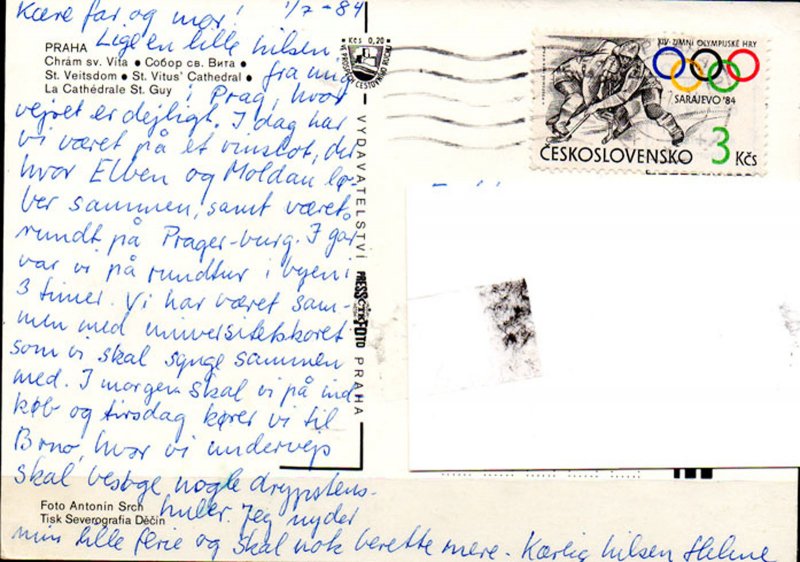 Kære far og mor! 1/7-84
Lige en lille hilsen
fra mig
i Prag, hvor
vejret er dejligt. I dag har
vi været på et vinslot, der
hvor Elben og Moldau lø-
ber sammen, samt været
rundt på Prager-burg. I går
var vi på rundtur i byen i
3 timer. Vi har været sam-
men med universitetskoret
som vi skal synge sammen
med. I morgen skal vi på ind
køb og tirsdag kører vi til
Brno, hvor vi undervejs
skal besøge nogle drypstens-
huler. Jeg nyder
min lille ferie og skal nok berette mere. Kærlig hilsen Helene
PRAHA
Chrám sv. Víta ● Собор св. Вита ●
St. Veitsdom ● St. Vitus' Cathedral ●
La Cathédrale St. Guy
Foto Antonín Srch
Tisk Severografia Děčín
Kčs 0,20
VYDAVATELSTVÍ
PRESSFOTO
PRAHA
XIV. ZIMNÍ OLYMPIJSKÉ HRY
SARAJEVO '84
ČESKOSLOVENSKO 3 Kčs